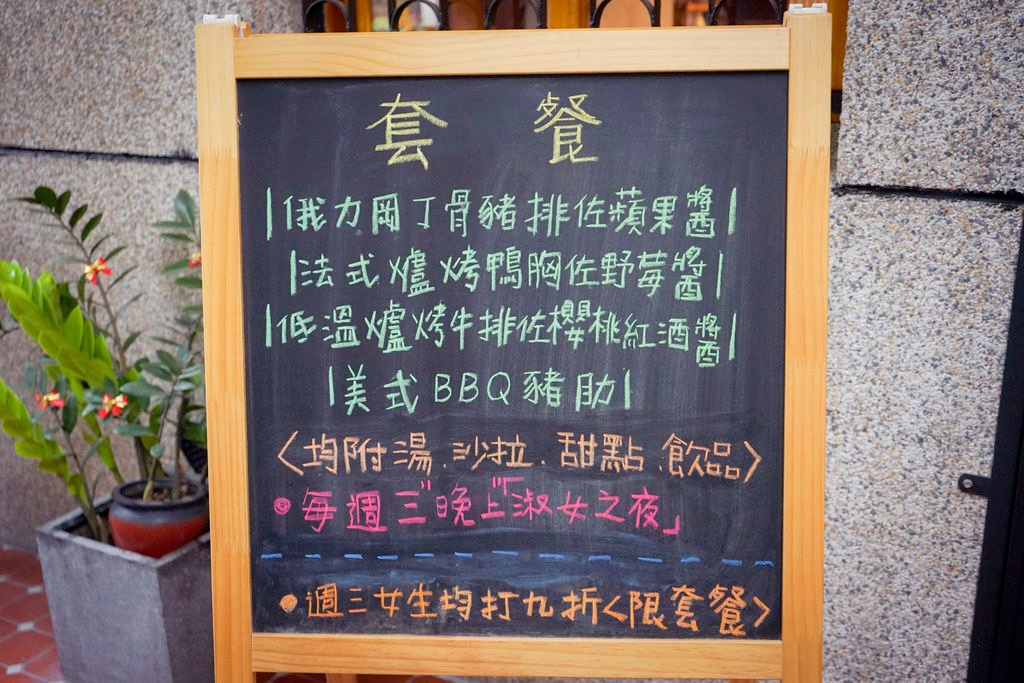 套餐
|俄力岡丁骨豬排佐蘋果醬|
|法式爐烤鴨胸佐野莓醬|
|低溫爐烤牛排佐櫻桃紅酒醬|
|美式BBQ豬肋|
〈均附湯.沙拉.甜點.飲品〉
●每週三"晚上"「淑女之夜」
●週三女生均打九折<限套餐>